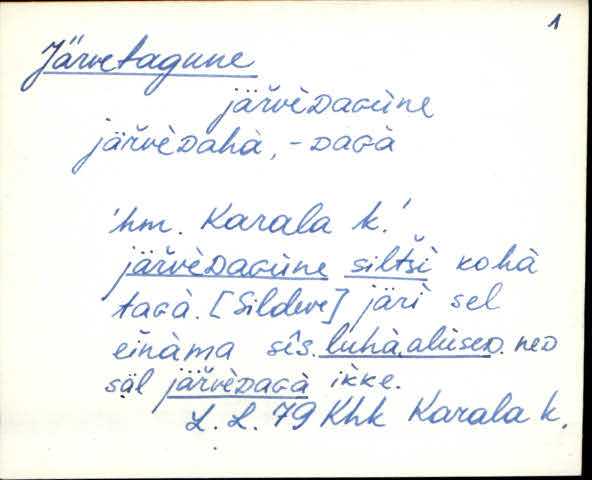 1
Järvetagune
jäřvèDaGùne
jäřvèDahà, -DaGà
'hm. Karala k.'
jäřvèDaGùne siltšì kohà
taGà. [Sildeve] järì sel
eînàma sîs. luhà,alùseD. neD
säl jäřvèDaGà ìkke.
L. L. 79 Khk Karala k.